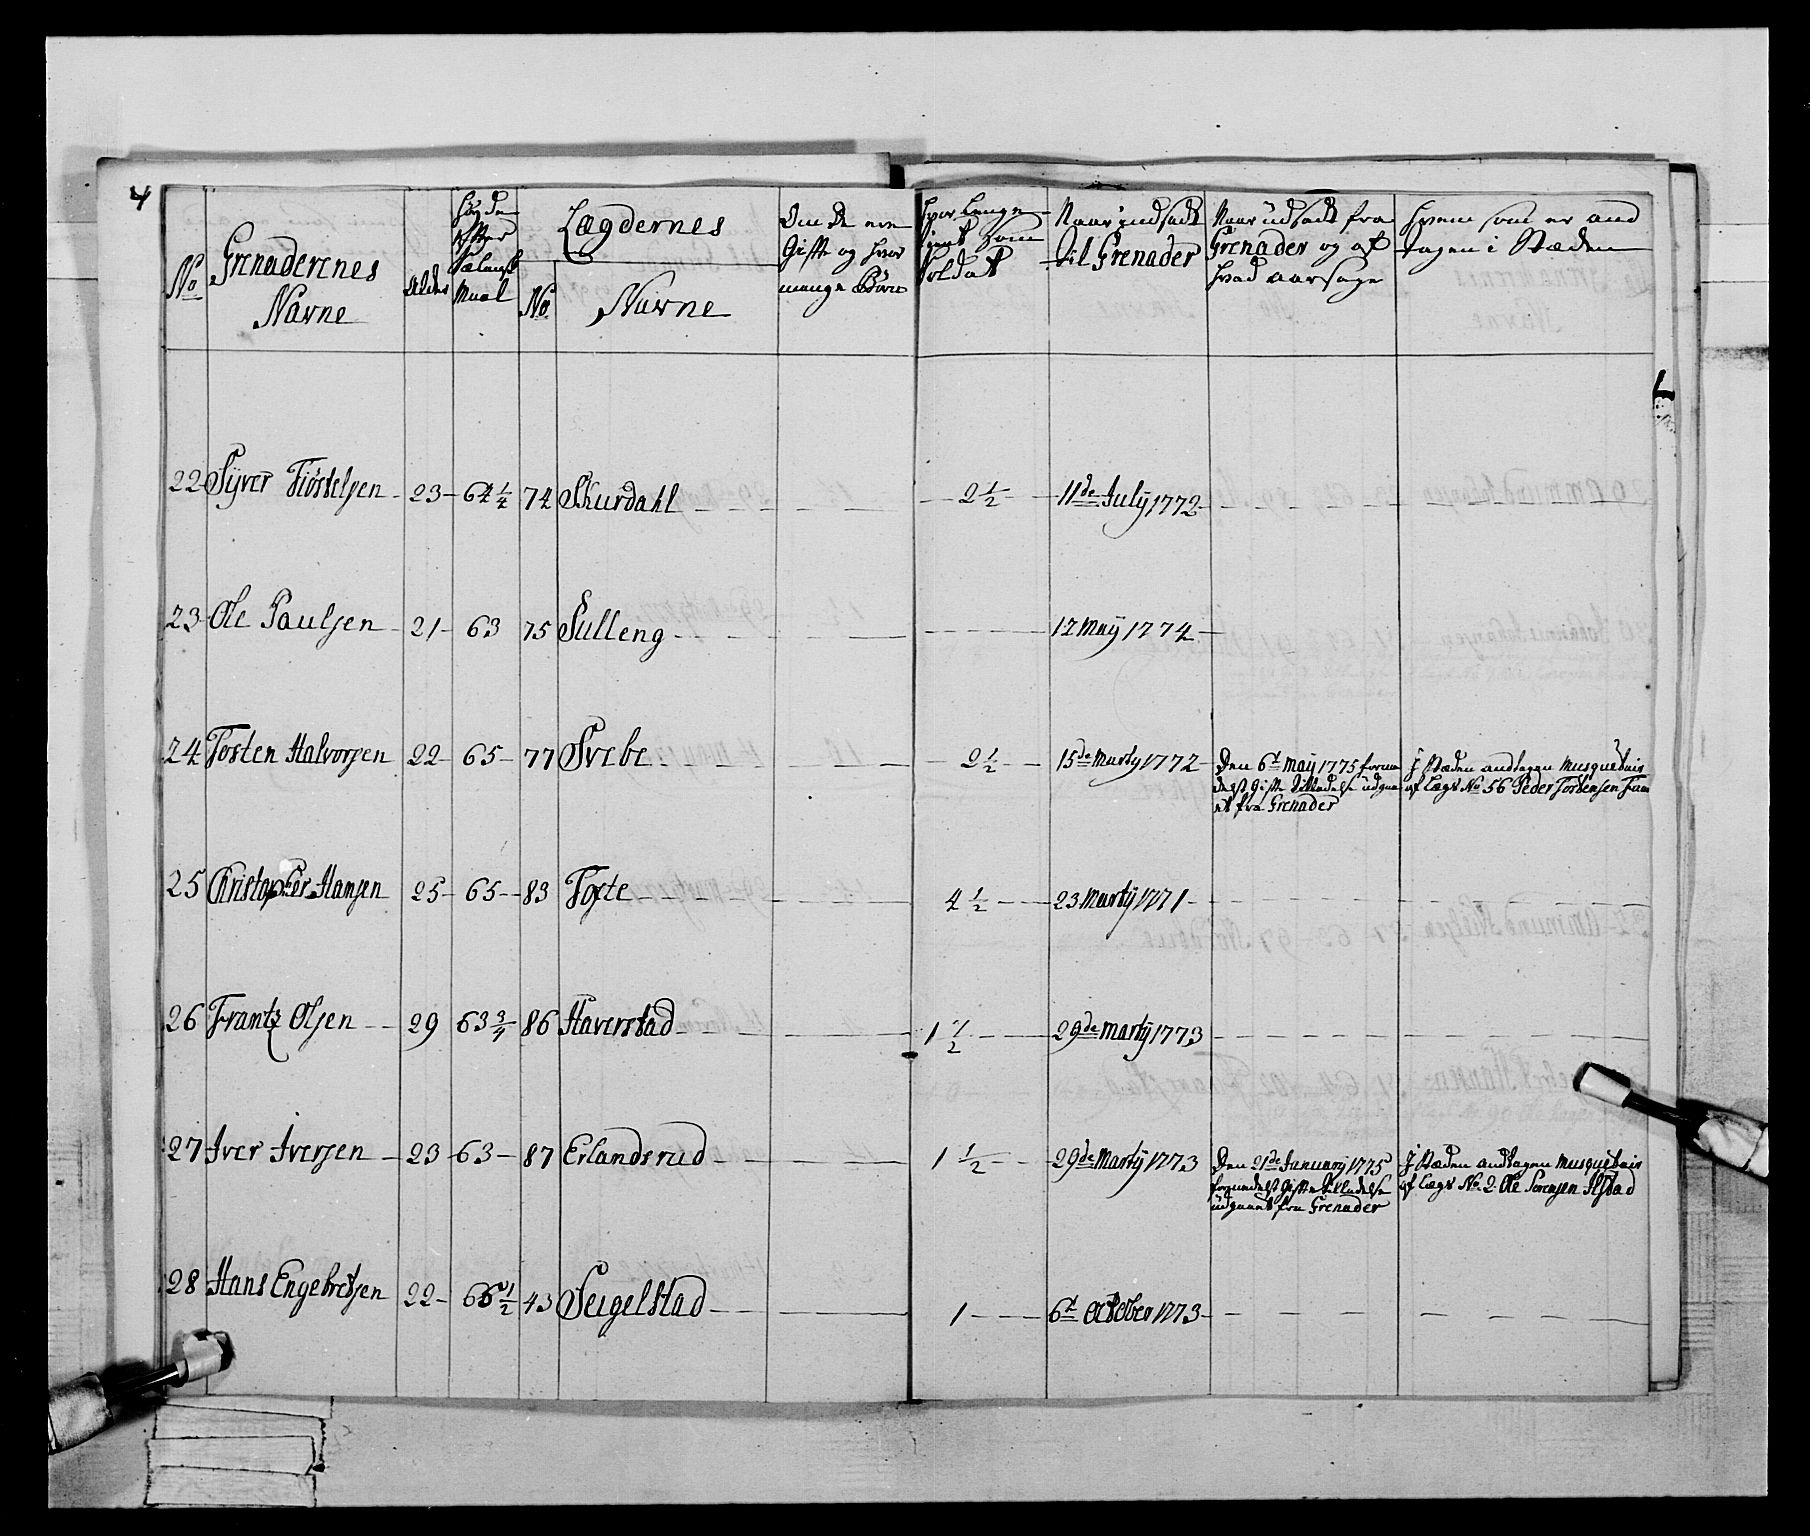 4
No
Grenaderenes
Navne
Alder
Høyde
Efter
Sælansk
Maal
Lægdernes
No
Navne
Om De ere
Gifte og hvor
mange Børn
Hvor Lenge
tient som
Soldat
Naar indsadt
til Grenader
Naar üdsadt fra
Grenader og af
hvad aarsage
Hvem som er and
tagen i Stæden
22 Sÿver Tiøstelsen 23 64 1/4 74 Skurdahl 2 1/2 11de Julÿ 1772
23 Ole Paulsen 21 63 75 Sulleng 12 Maÿ 1774
24 Tosten Halvorsen 22 65 77 Svebe 2 1/2 15de Martÿ 1772
Den 6t Maÿ 1775 formе
delst Gifte Tilladelse üdgaa
et fra Grenader
J Stæden andtagen Musquetair
af Lægd No 56 Peder Tostensen
25 Christopher Hansen 25 65 83 Tofte 4 1/2 23 Martÿ 1771
26 Frantz Olsen 29 63 3/4 86 Haverstad 1 1/2 29de Martÿ 1773
27 Iver Iversen 23 63 87 Erlandsrud 1 1/2 29de Martÿ 1773
Den 21de Januarÿ 1775
formedelst Gifte Tilladelse
üdgaaet fra Grenader
J Stæden andtagen Musquetair
af Lægd No 2 Ole Sørensen Ilstad
28 Hans Engebretsen 22 66 1/2 43 Seigelstad 1 6t October 1773